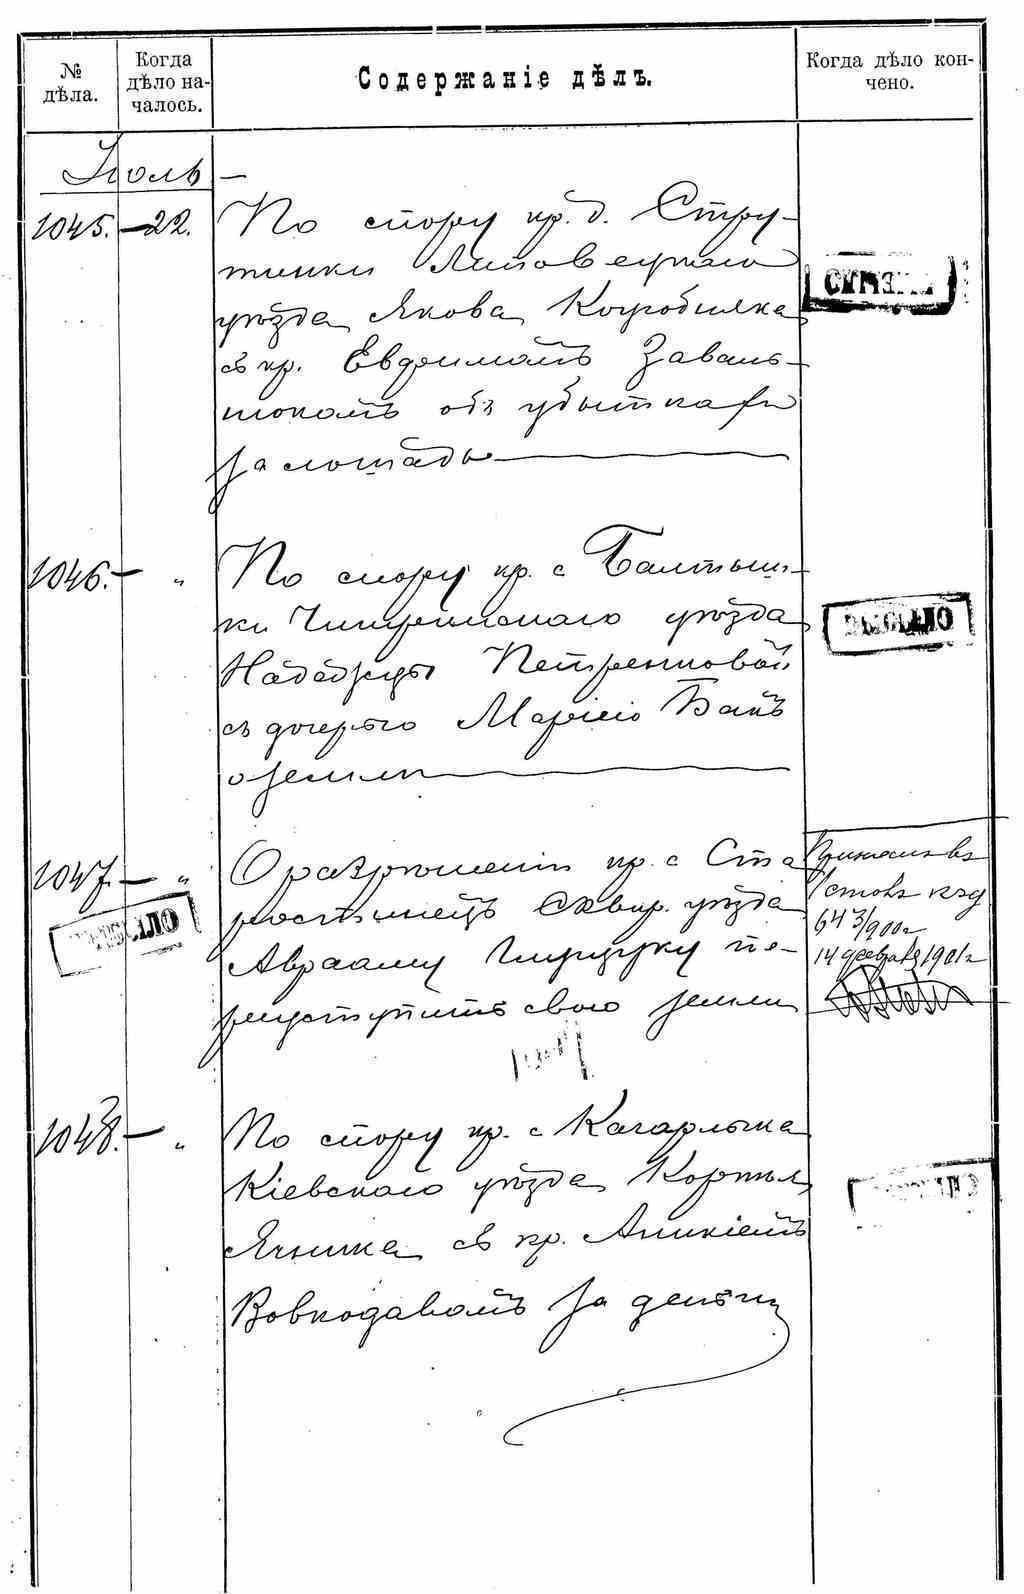 № дѣла.
Когда дѣло на-
чалось.
Содержаніе дѣлъ.
Когда дѣло кон-
чено.
Іюль –
1045. – 22. По спору кр. д. Стру-
тинки Липовецкаго
уѣзда Якова Коцюбняка
съ кр. Евдокимомъ Заваль-
нюкомъ объ убыткахъ
за лошадь
1046. – „ По спору кр. с Балтыш-
ки Чигиринскаго уѣзда
Надежды Петренковой
съ дочерью Маріею Бакъ
о земли
1047. – „ О разрѣшеніи кр. с Ста
ростинецъ Сквир. уѣзда
Аврааму пе-
реуступить свою землю
въ
643/900 г
14 февраля 1901 г
ВЫСЛАНО
1048. – „ По спору кр. с Кагарлыка
Кіевскаго уѣзда Корнія
Ячника съ кр. Аникіемъ
Вовкодавомъ за деньги